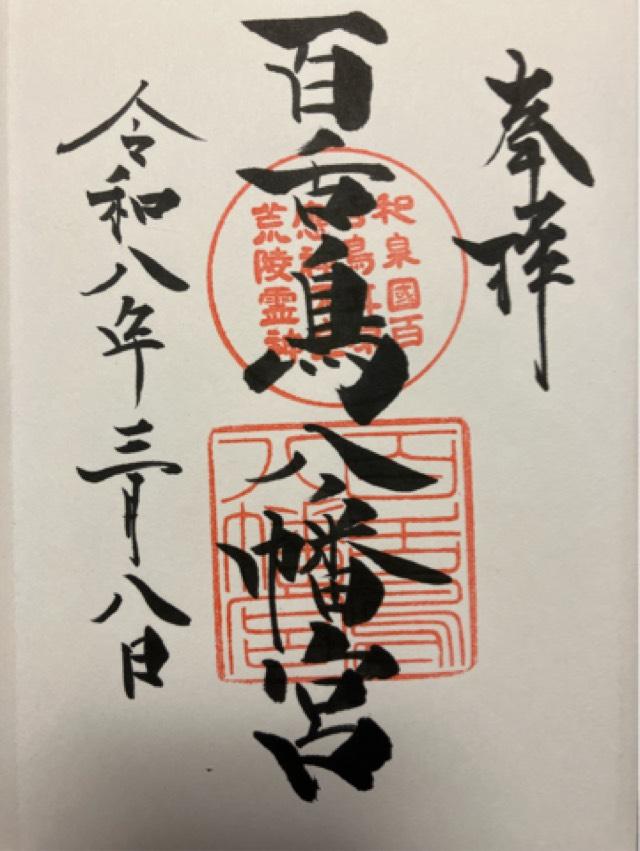 奉拝
百舌鳥八幡宮
令和八年三月八日
和泉國百
舌鳥
荒陵霊
百舌鳥
八幡宮